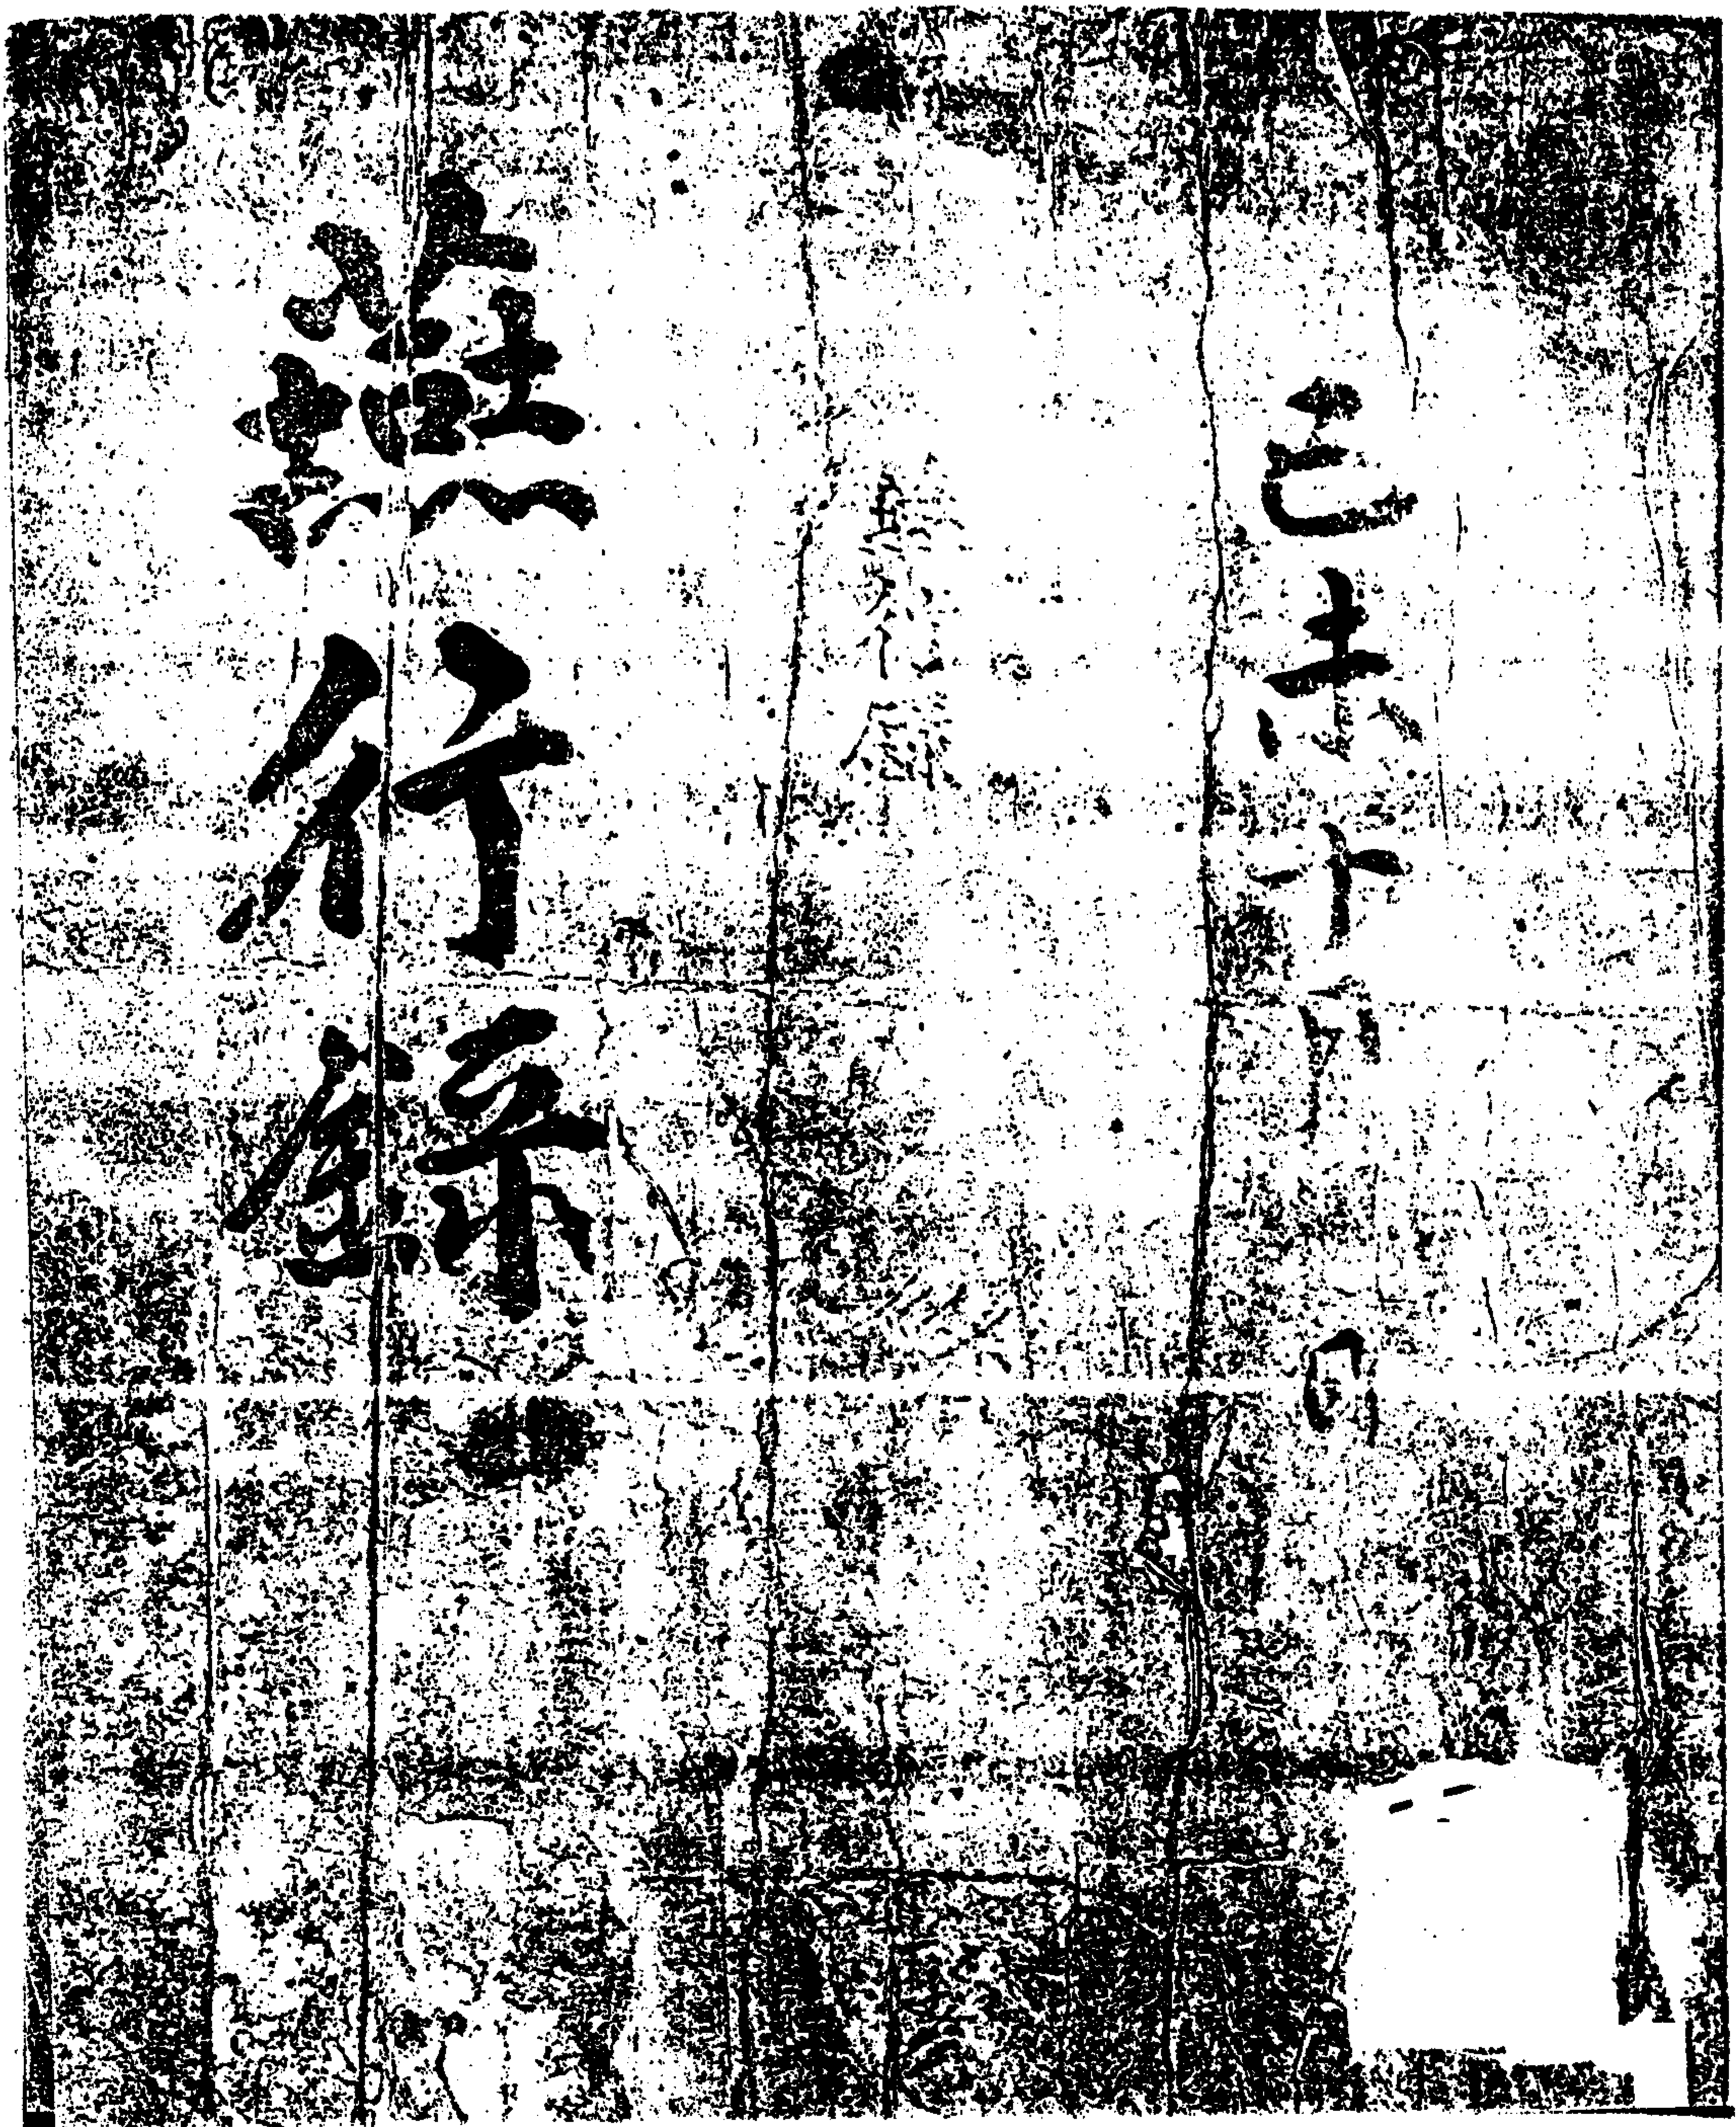 己未十月 日
燕行錄